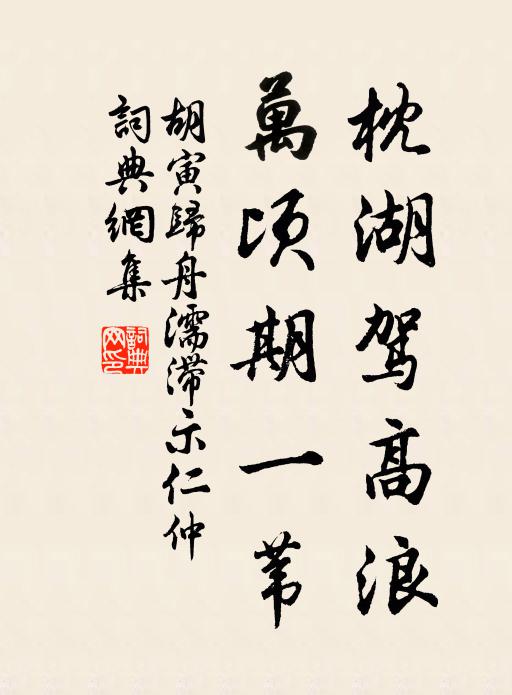 枕湖驾高浪
萬顷期一苇
胡寅歸舟濡滞示仁仲
詞典網集
詞典网印